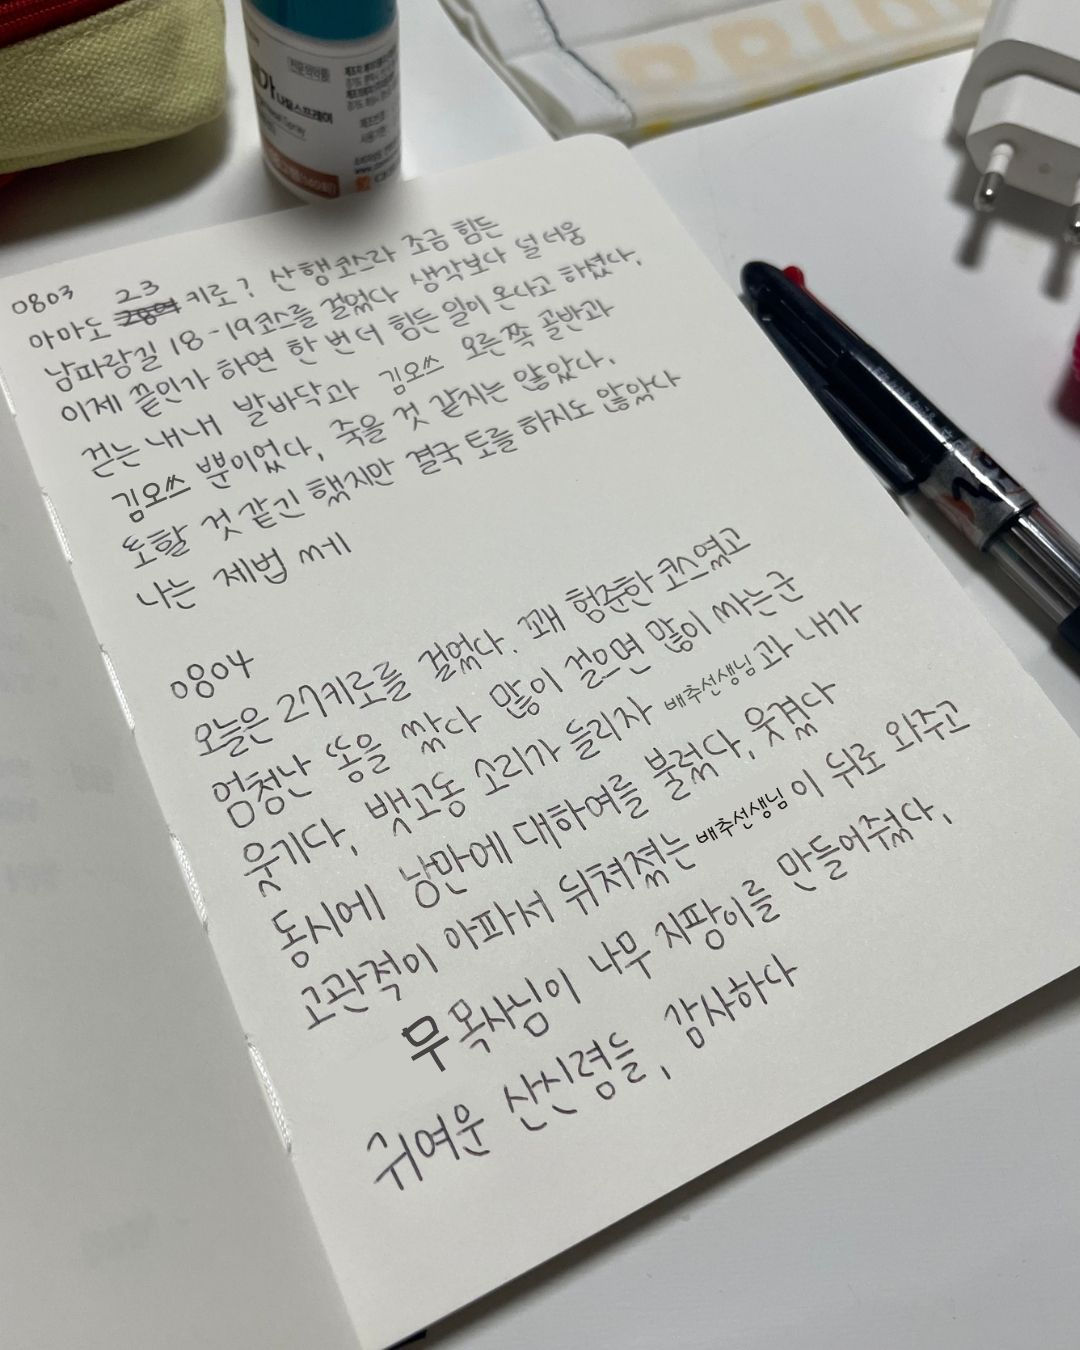 전문의약품
나잘스프레이
Nasal Spray
0803
아마도 23 키로? 산행코스라 조금 힘든
남파랑길 18-19코스를 걸었다 생각보다 덜 더움
이제 끝인가 하면 한 번 더 힘든 일이 온다고 하셨다.
걷는 내내 발바닥과 김오쓰 오른쪽 골반과
김오쓰 뿐이었다, 죽을 것 같지는 않았다.
토할 것 같긴 했지만 결국 토를 하지도 않았다
나는 제법 쎄
0804
오늘은 27키로를 걸었다. 꽤 험준한 코스였고
엄청난 똥을 쌌다 많이 걸으면 많이 싸는군
웃기다, 뱃고동 소리가 들리자 배추선생님과 내가
동시에 낭만에 대하여를 불렀다, 웃겼다
고관절이 아파서 뒤쳐졌는 배추선생님이 뒤로 와주고
무목사님이 나무 지팡이를 만들어주셨다,
귀여운 산신령들, 감사하다